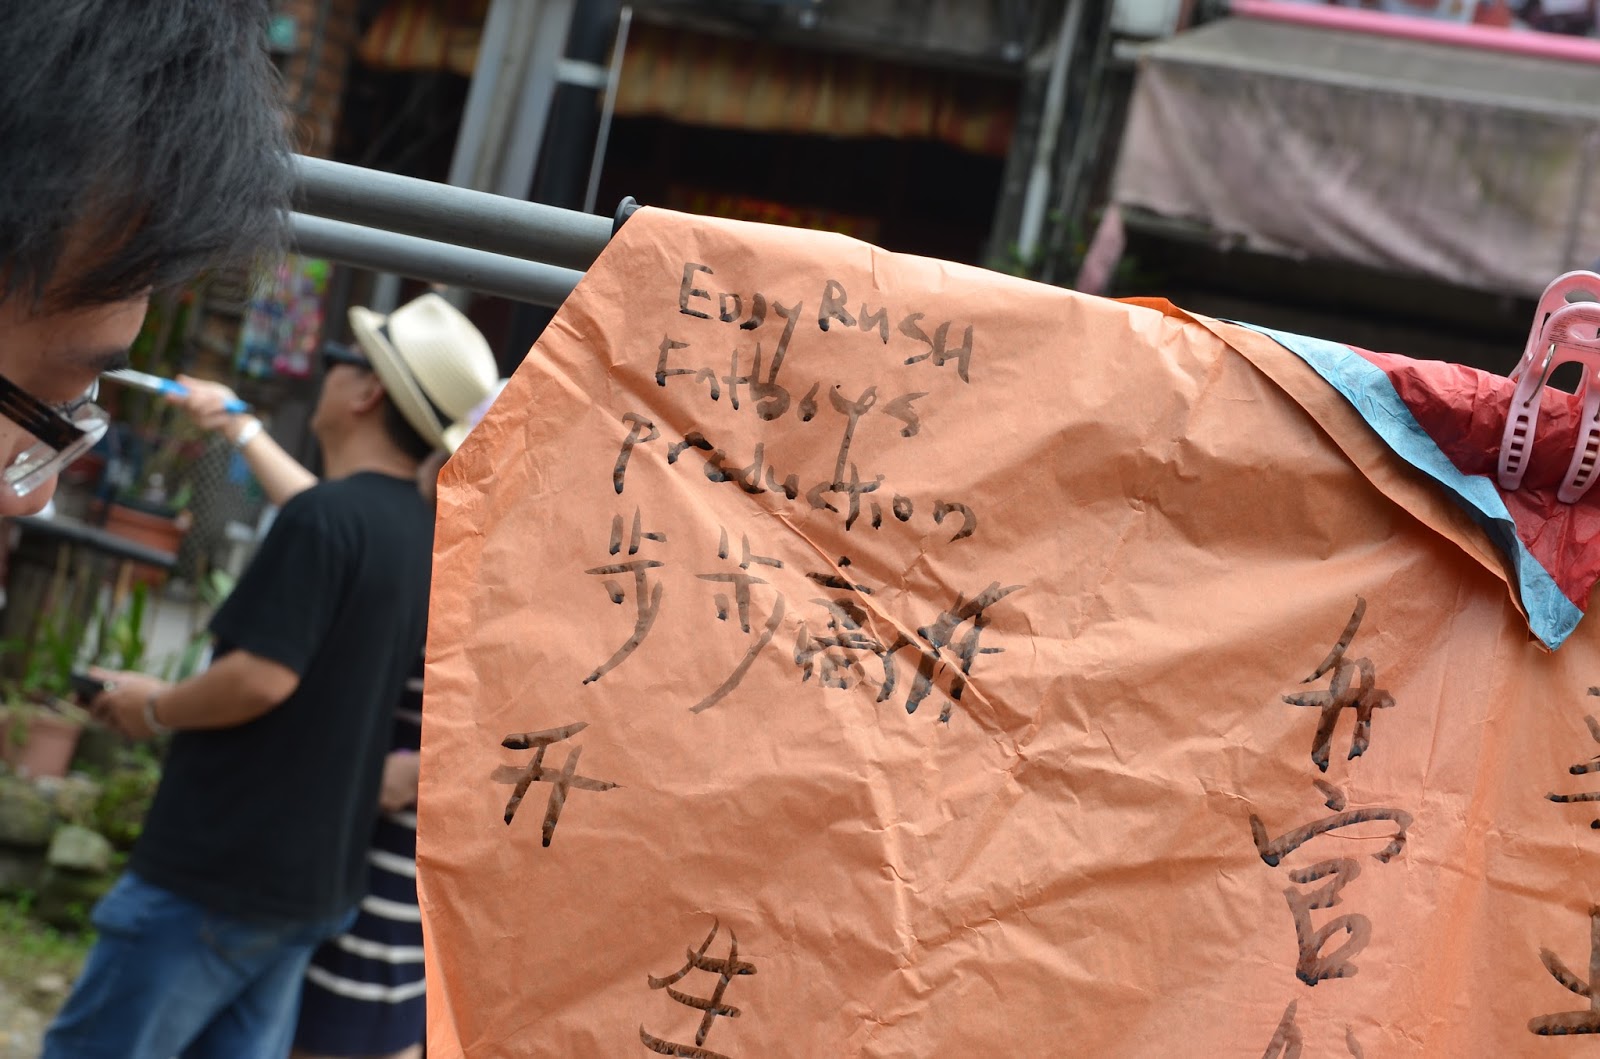 EDDY RUSH
Fatboys
Production
步步高升
开
生
升
官